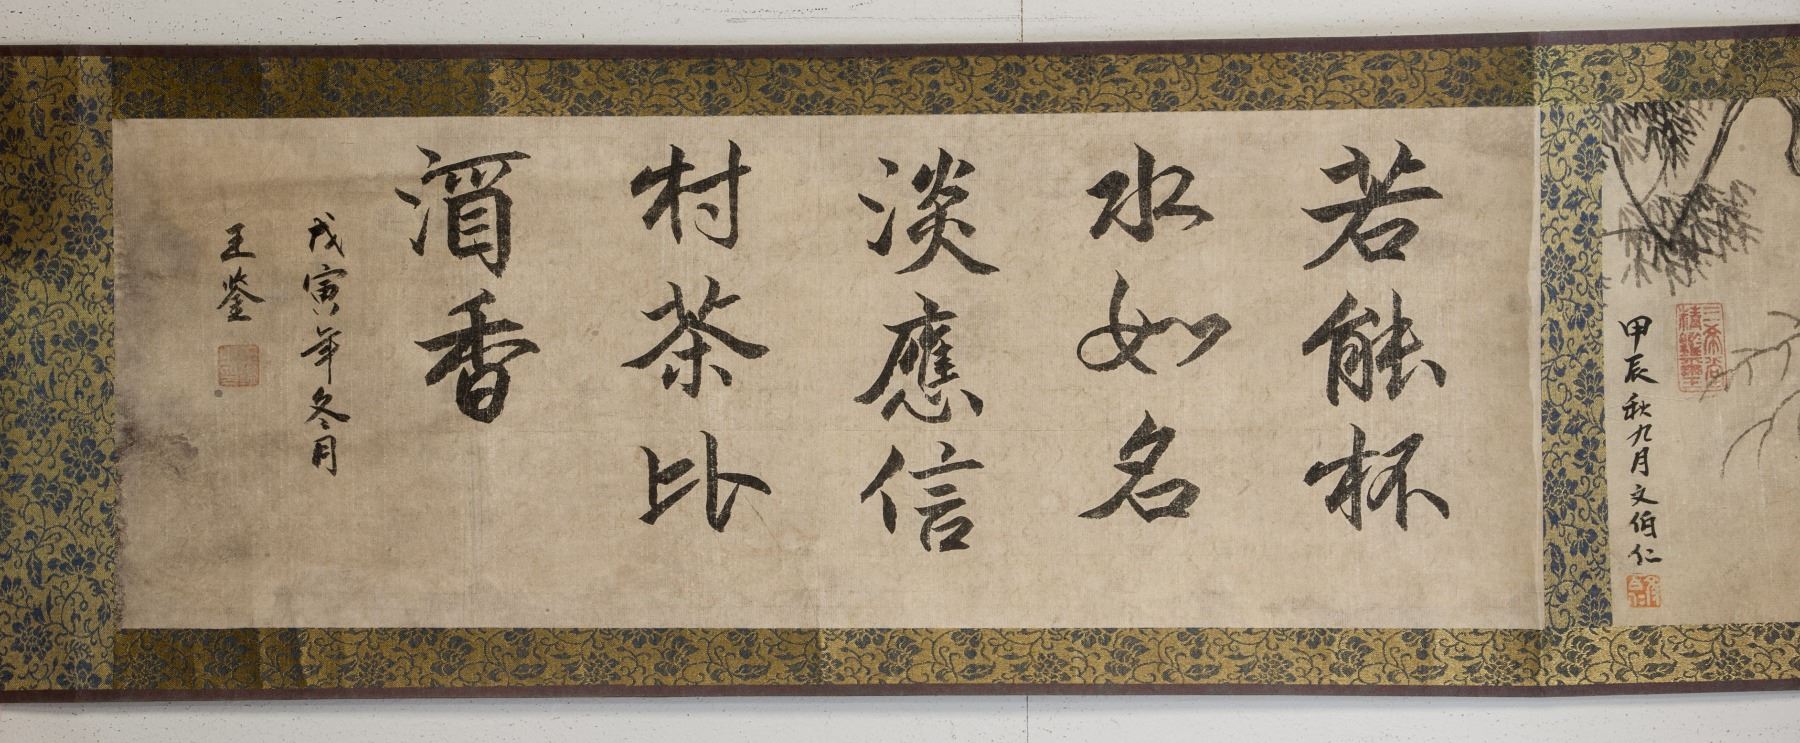 三希堂
精鑑璽
甲辰秋九月文伯仁
若能杯
水如名
淡應信
村茶比
酒香
戊寅年冬月
王鑒